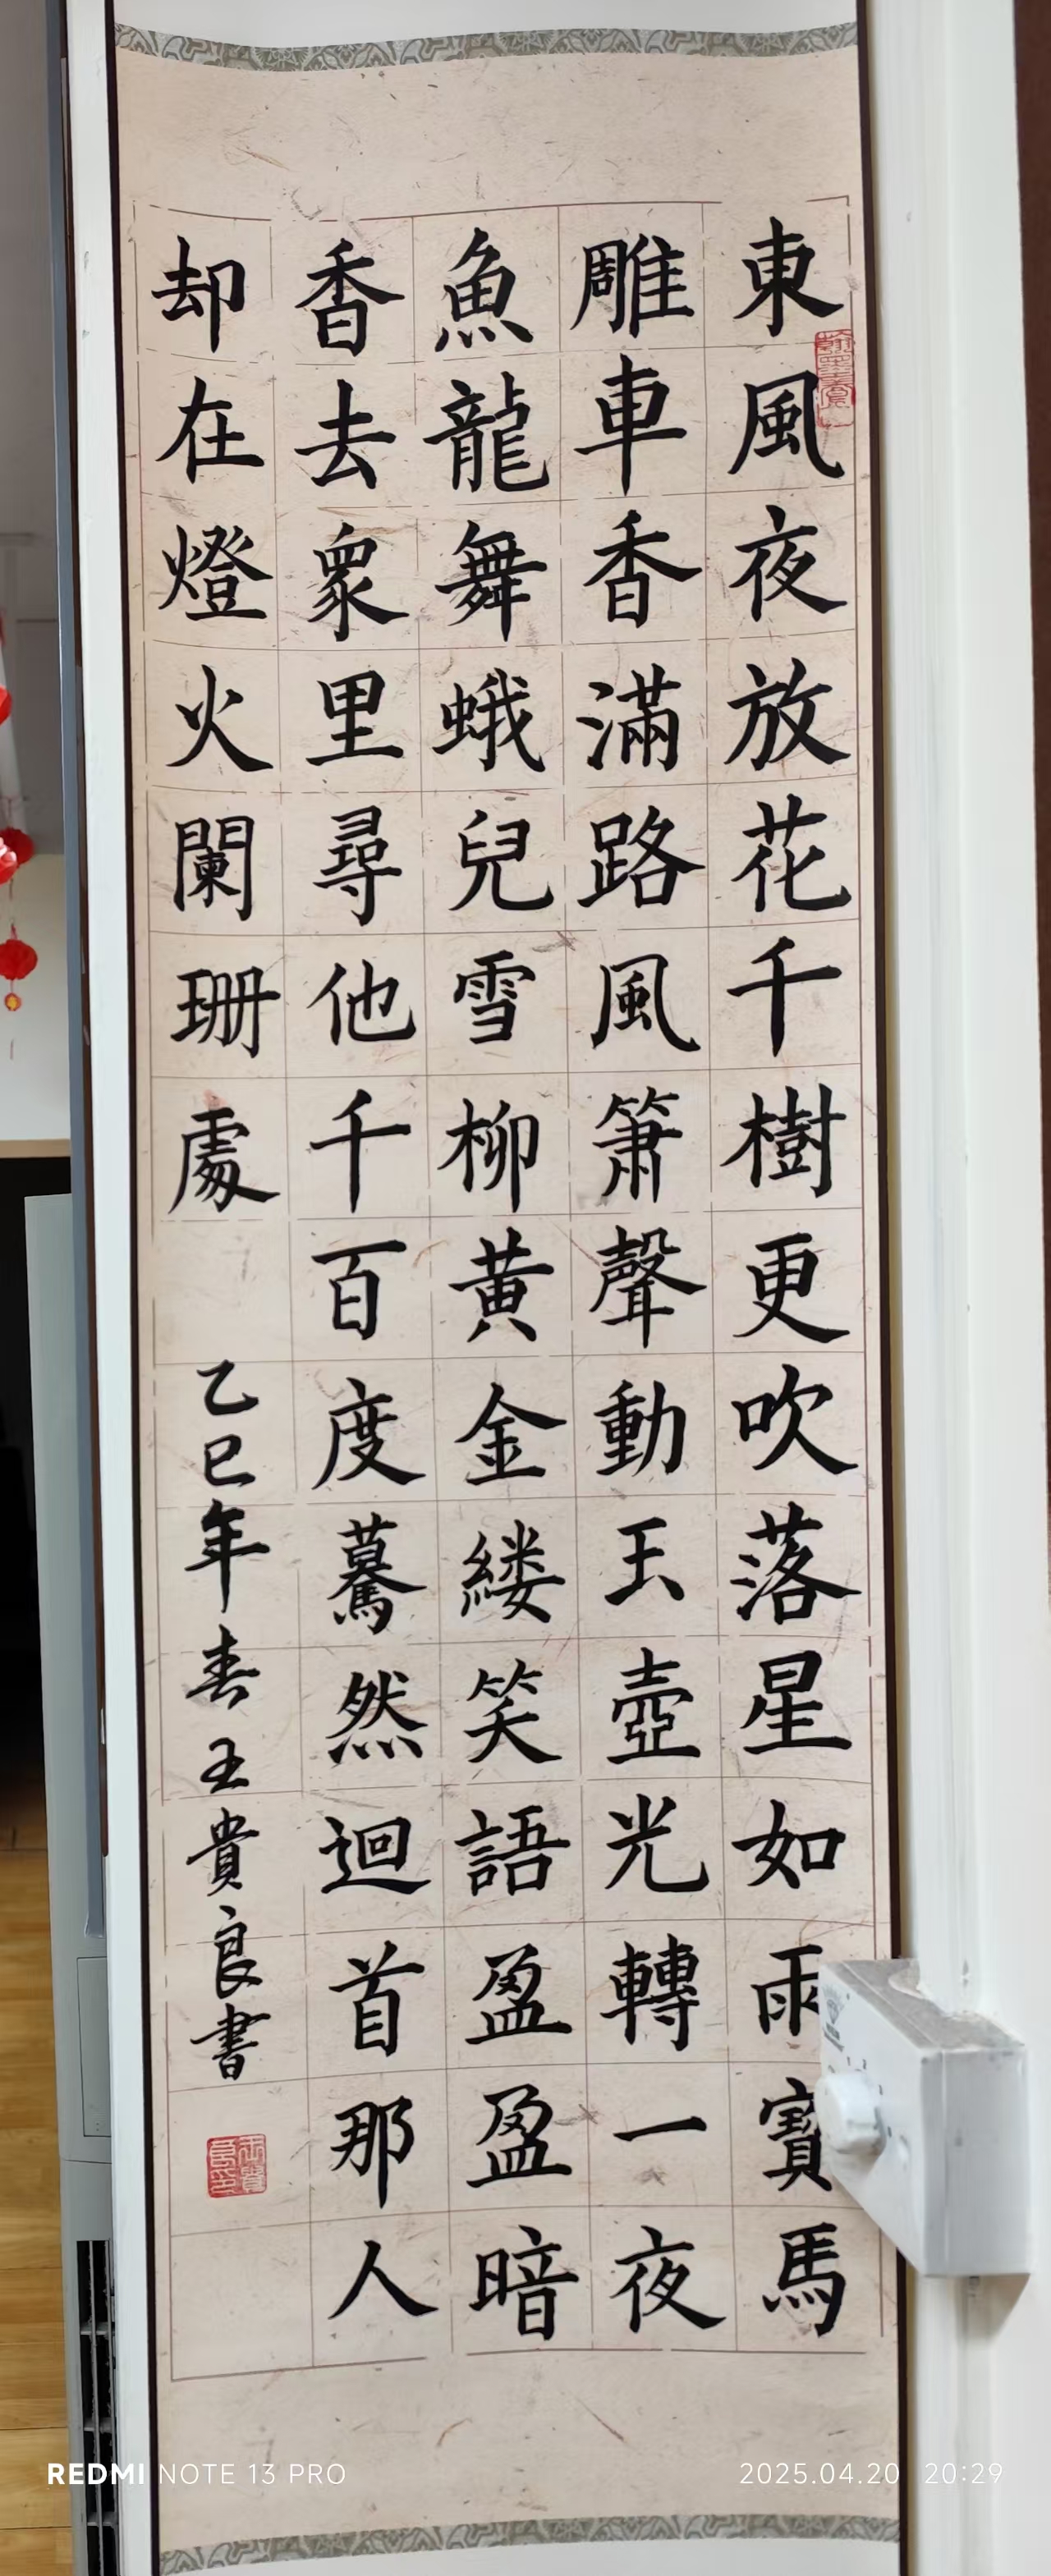 東風夜放花千樹更吹落星如雨寶馬
雕車香滿路風簫聲動玉壺光轉一夜
魚龍舞蛾兒雪柳黄金縷笑語盈盈暗
香去眾里尋他千百度驀然迴首那人
却在燈火闌珊處
乙巳年春王貴良書
王貴良印
REDMI NOTE 13 PRO
2025.04.20 20:29